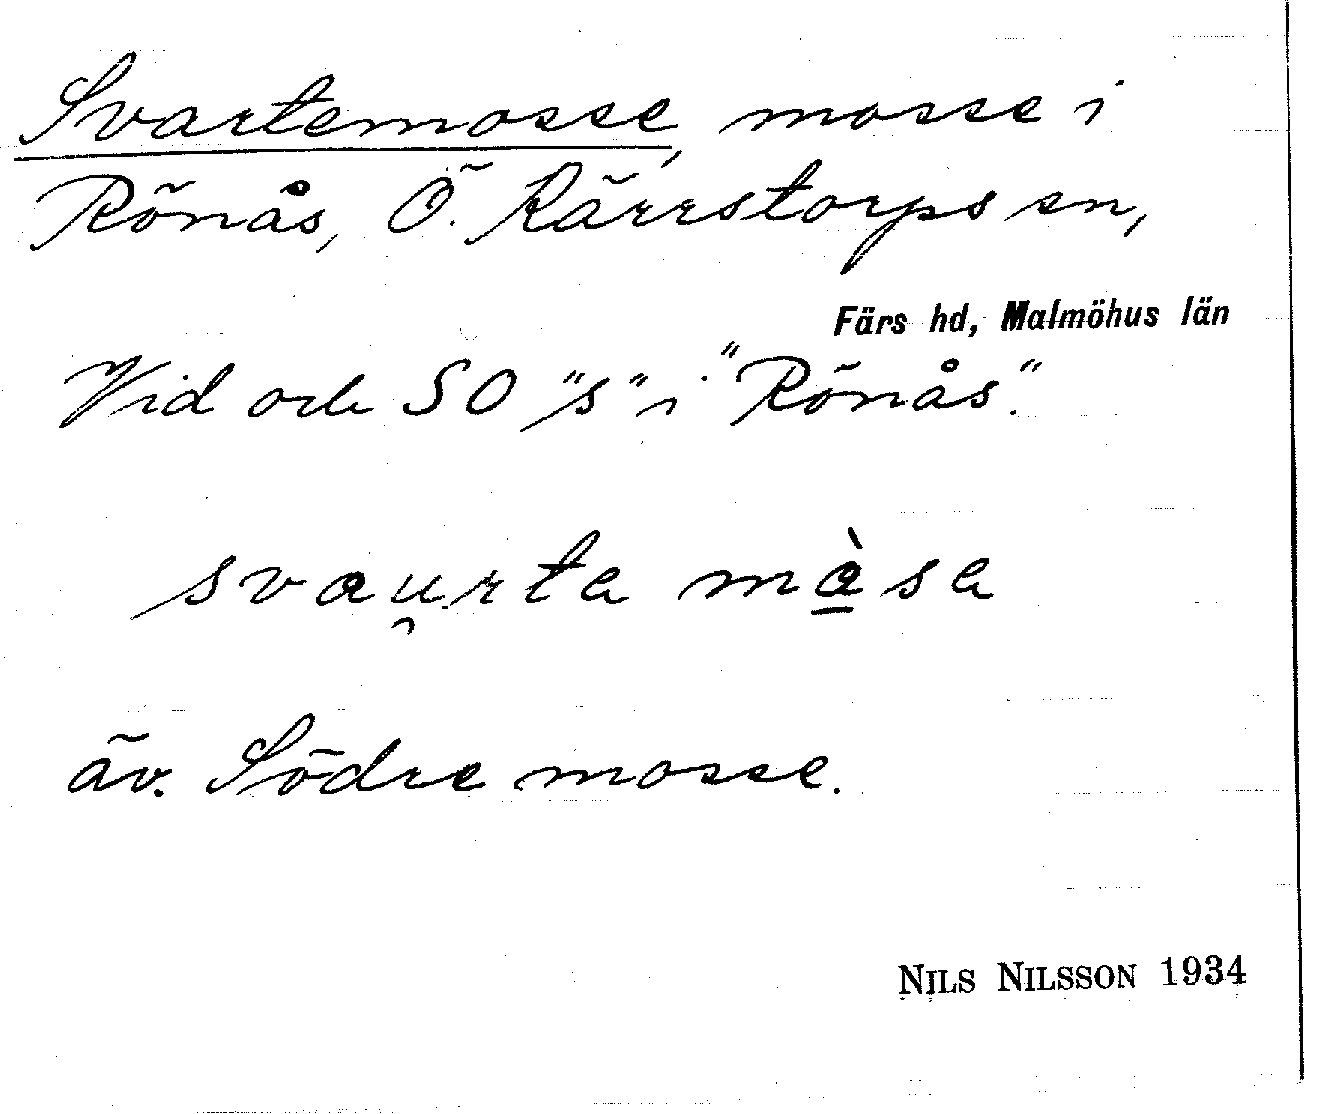 Svartemosse, mosse i
Rönås, Ö. Kärrstorps sn,
Färs hd, Malmöhus län
Vid och SO "s" i "Rönås".
svau̯rta màsa
äv. Södre mosse.
NILS NILSSON 1934